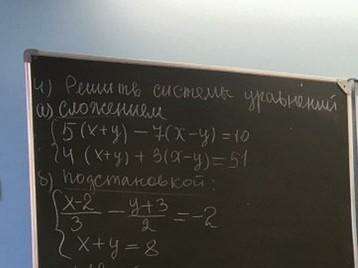 4) Решить системы уравнений
а) сложением
{5(x+y) − 7(x−y) = 10
{4(x+y) + 3(x−y) = 51
б) подстановкой:
{(x−2)/3 − (y+3)/2 = −2
{x+y = 8